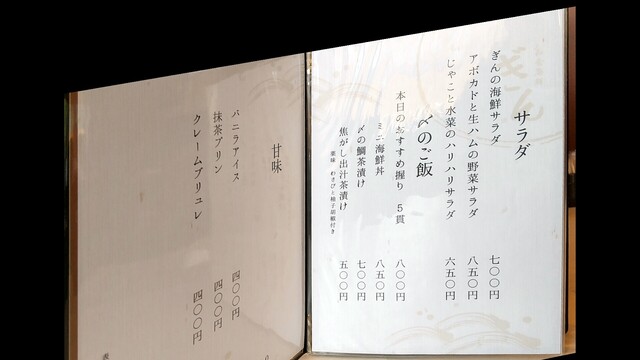 サラダ
ぎんの海鮮サラダ 七〇〇円
アボカドと生ハムの野菜サラダ 八五〇円
じゃこと水菜のハリハリサラダ 六五〇円
〆のご飯
本日のおすすめ握り 5貫 八〇〇円
ミニ海鮮丼 八五〇円
〆の鯛茶漬け 七〇〇円
焦がし出汁茶漬け 五〇〇円
薬味 わさびと柚子胡椒付き
甘味
バニラアイス 四〇〇円
抹茶プリン 四〇〇円
クレームブリュレ 四〇〇円